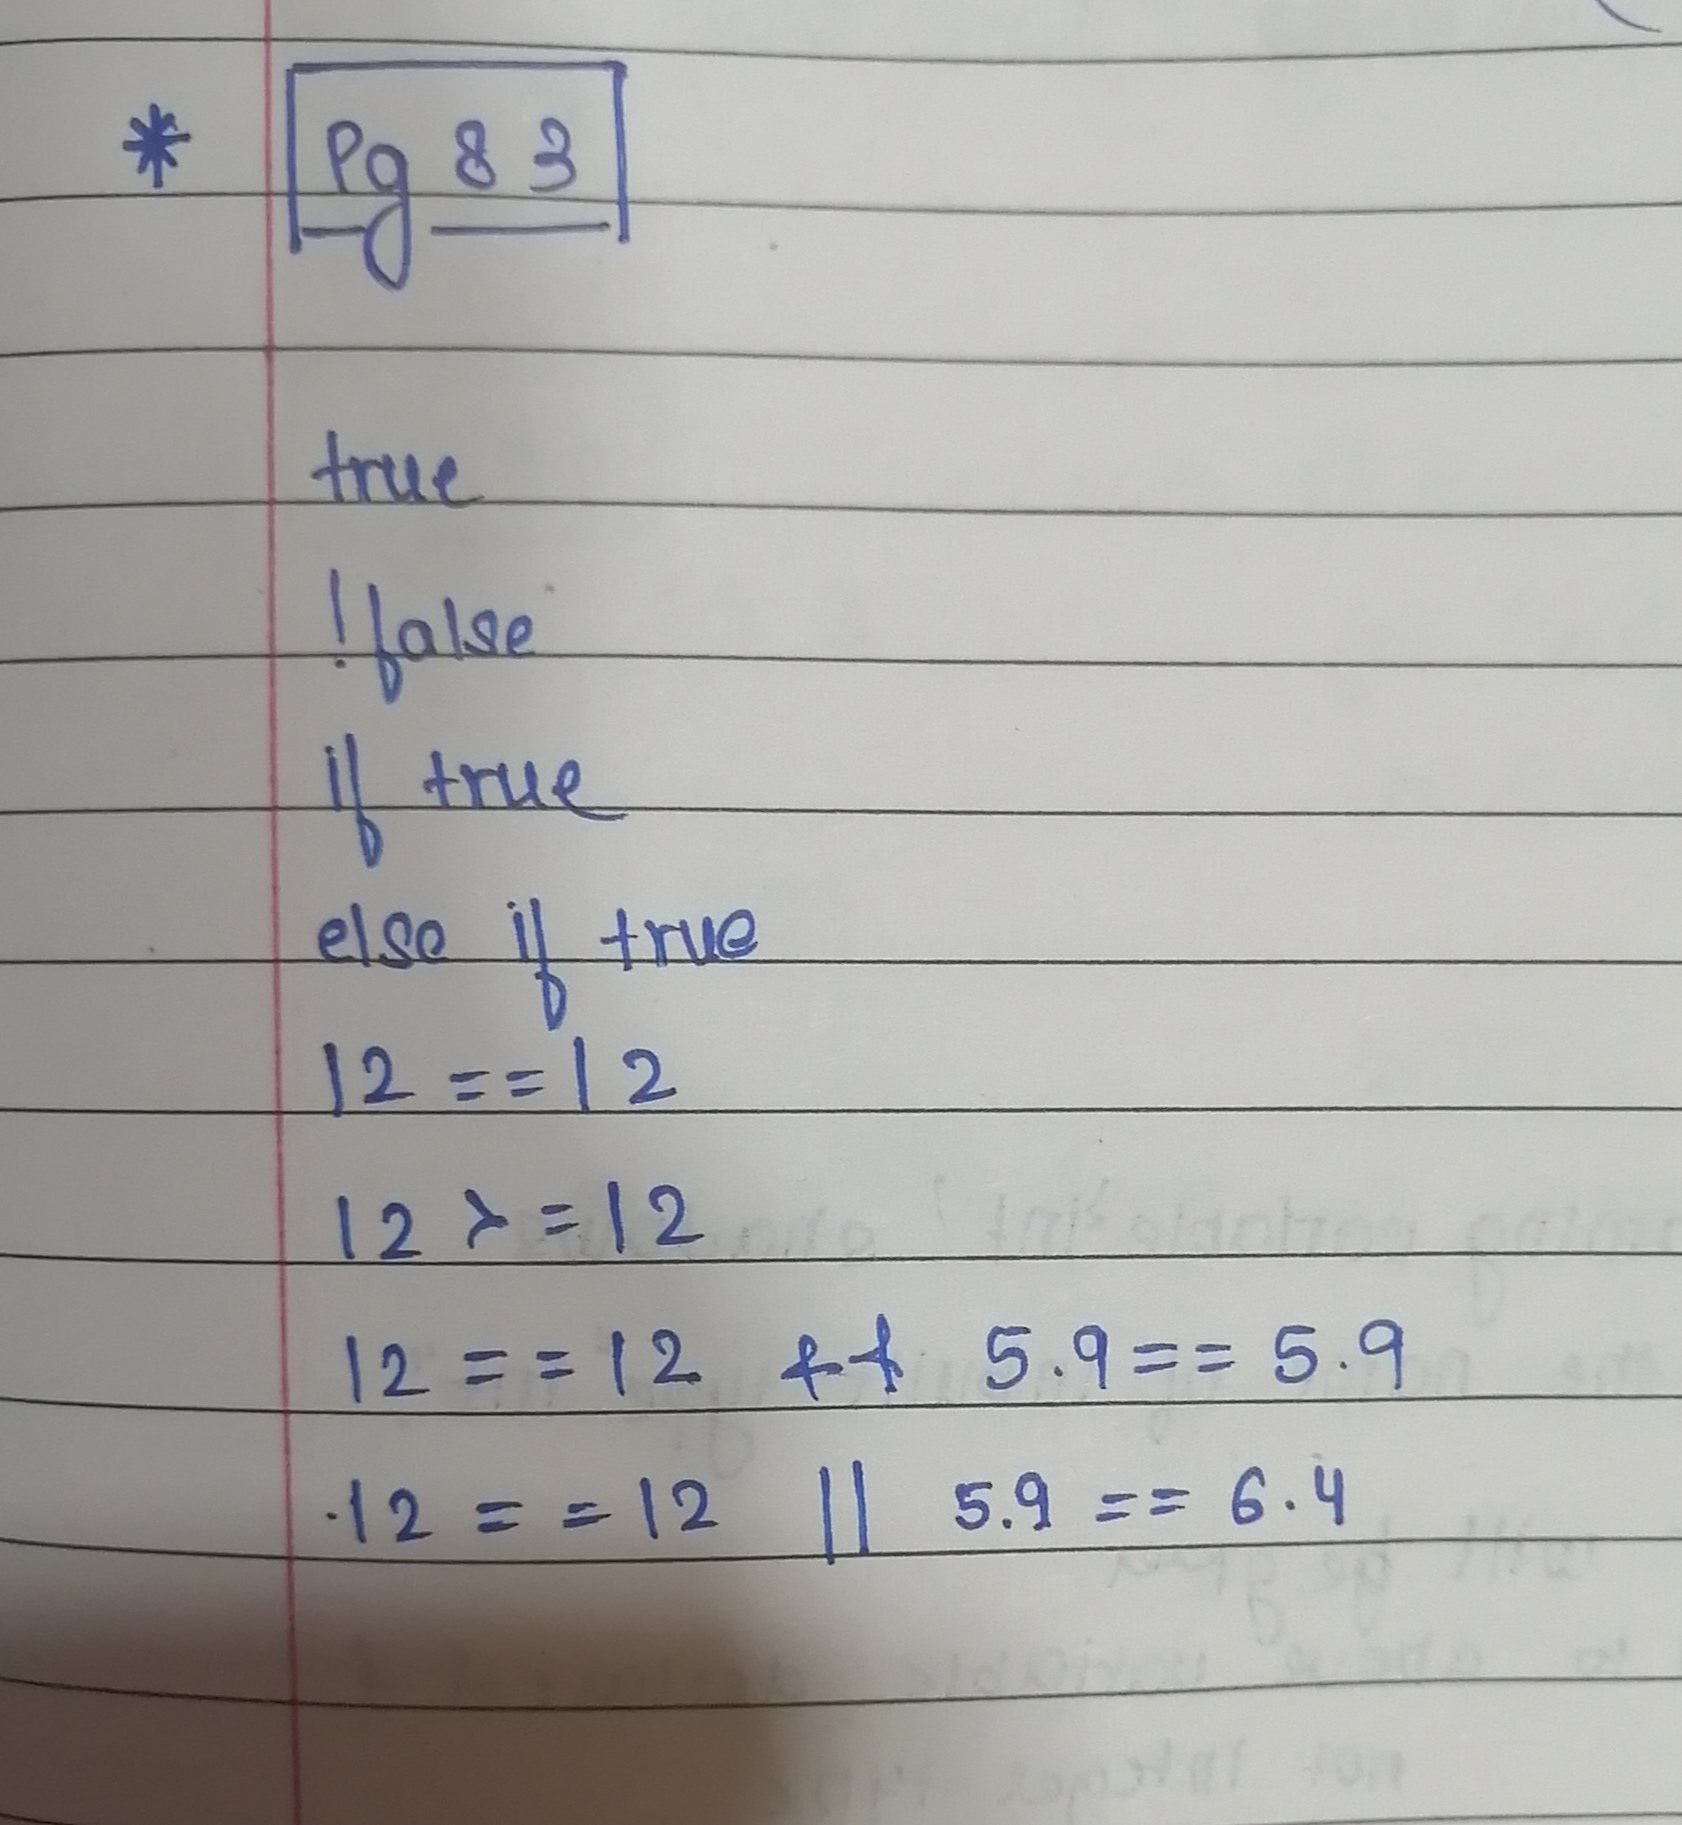 * Pg 83
true
!false
if true
else if true
12 == 12
12 >= 12
12 == 12 && 5.9 == 5.9
12 == 12 || 5.9 == 6.4